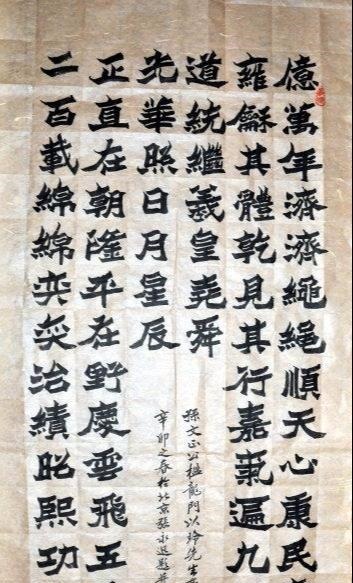 億萬年濟濟繩繩順天心康民
雍龢其體乾見其行嘉氣遍九
道統繼羲皇堯舜
二百載綿綿奕奕治績昭熙功
正直在朝隆平在野慶雲飛五
光華照日月星辰
孫文正公楹龍門以玲先生
辛卯之春於北京張永退題